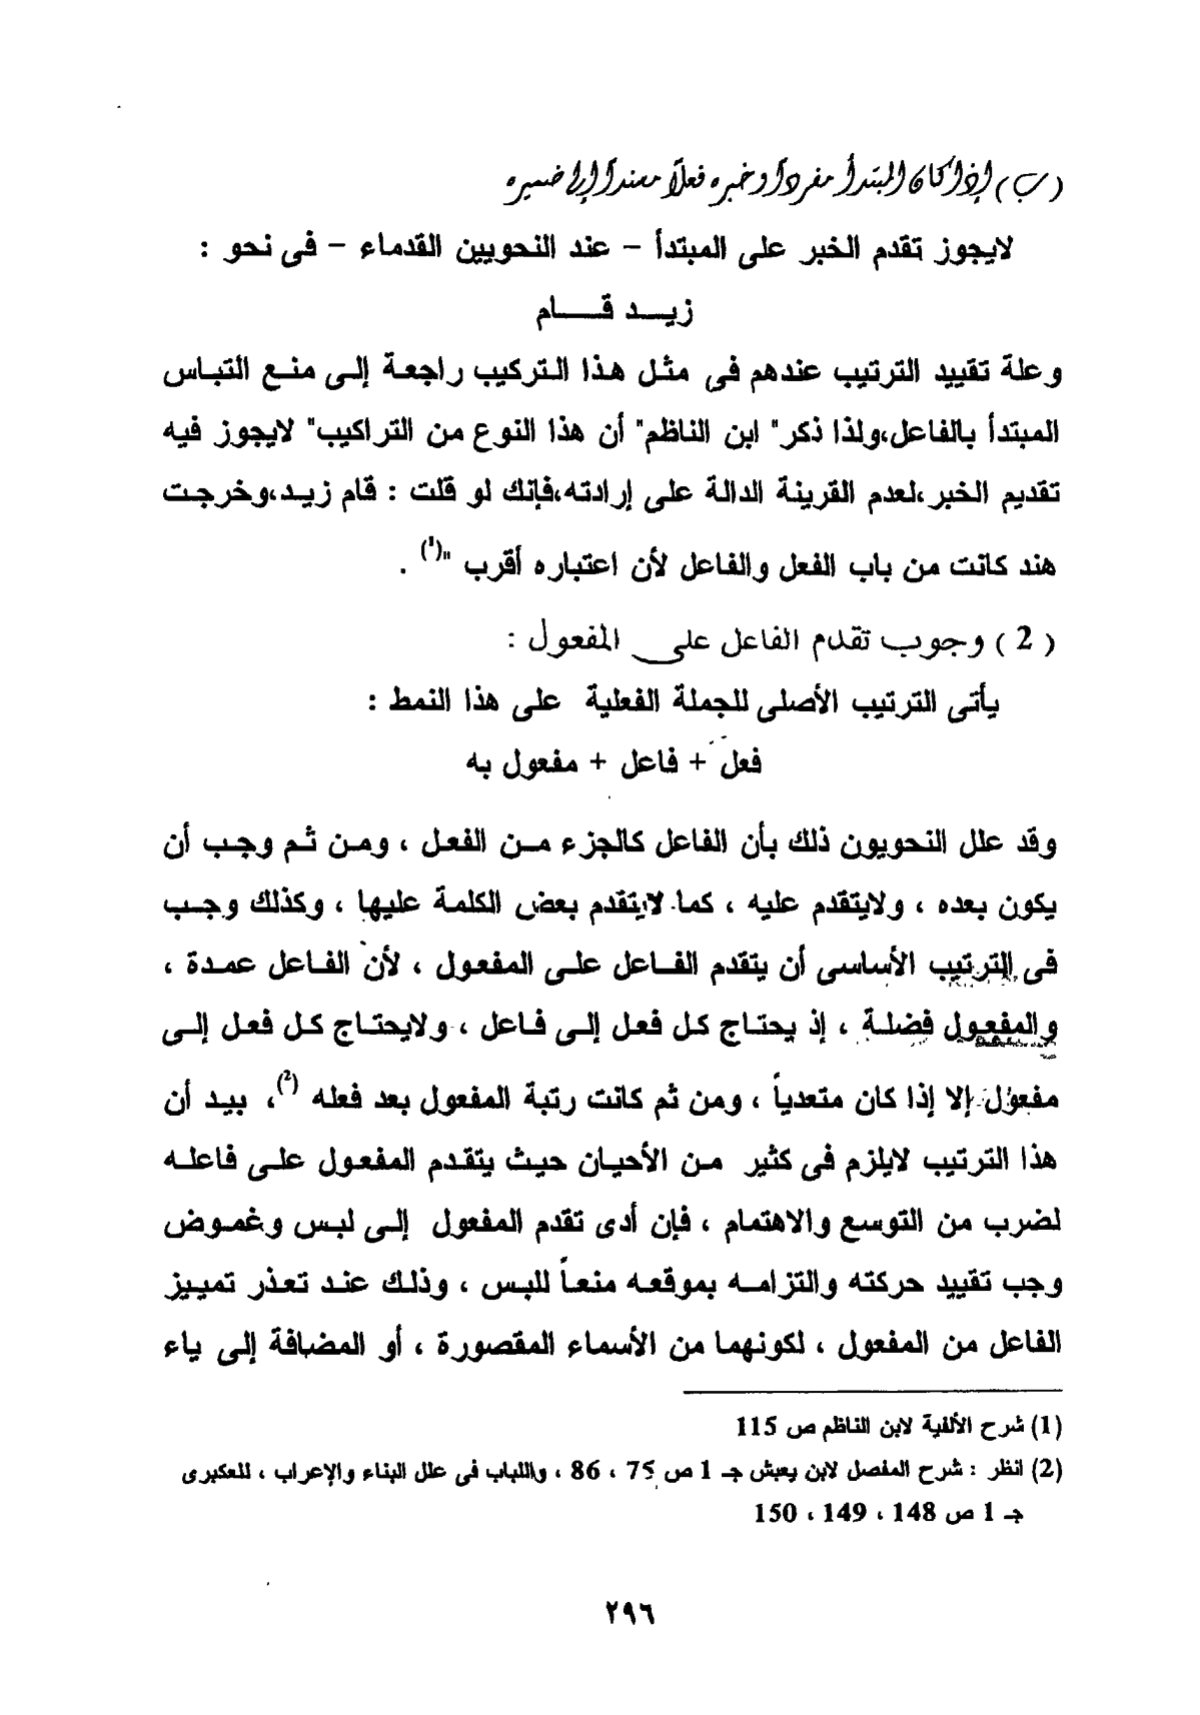 (ب) إذا كان المبتدأ مفرداً وخبره فعلاً مسنداً إلى ضميره
لايجوز تقدم الخبر على المبتدأ – عند النحويين القدماء – فى نحو :
زيــد قــــام
وعلة تقييد الترتيب عندهم فى مثل هذا التركيب راجعة إلى منع التباس
المبتدأ بالفاعل،ولذا ذكر" ابن الناظم" أن هذا النوع من التراكيب" لايجوز فيه
تقديم الخبر ،لعدم القرينة الدالة على إرادته،فإنك لو قلت : قام زيد،وخرجت
هند كانت من باب الفعل والفاعل لأن اعتباره أقرب "(١) .
( 2 ) وجوب تقدم الفاعل على المفعول :
يأتى الترتيب الأصلى للجملة الفعلية على هذا النمط :
فعل + فاعل + مفعول به
وقد علل النحويون ذلك بأن الفاعل كالجزء من الفعل ، ومن ثم وجب أن
يكون بعده ، ولايتقدم عليه ، كما لايتقدم بعض الكلمة عليها ، وكذلك وجب
فى الترتيب الأساسى أن يتقدم الفاعل على المفعول ، لأن الفاعل عمدة ،
والمفعول فضلة ، إذ يحتاج كل فعل إلى فاعل ، ولايحتاج كل فعل إلى
مفعول إلا إذا كان متعدياً ، ومن ثم كانت رتبة المفعول بعد فعله (2)، بيد أن
هذا الترتيب لايلزم فى كثير من الأحيان حيث يتقدم المفعول على فاعله
لضرب من التوسع والاهتمام ، فإن أدى تقدم المفعول إلى لبس وغموض
وجب تقييد حركته والتزامه بموقعه منعاً للبس ، وذلك عند تعذر تمييز
الفاعل من المفعول ، لكونهما من الأسماء المقصورة ، أو المضافة إلى ياء
(1) شرح الألفية لابن الناظم ص 115
(2) انظر : شرح المفصل لابن يعيش جـ 1 ص 75 ، 86 ، واللباب فى علل البناء والإعراب ، للعكبرى
جـ 1 ص 148 ، 149 ، 150
٢٩٦